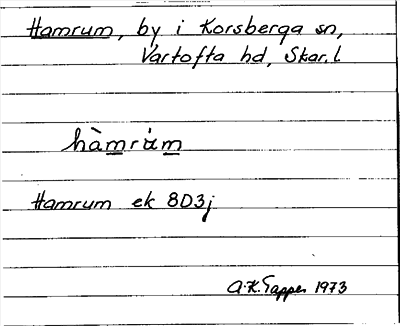 Hamrum, by i Korsberga sn,
Vartofta hd, Skar.l
hàmrùm
Hamrum ek 8D3j
A.K. Tapper 1973